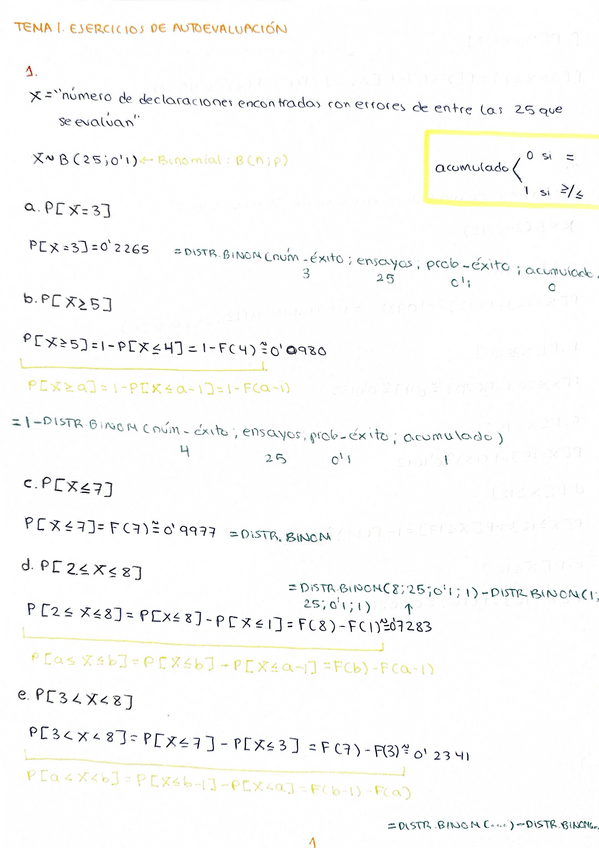 TEMA 1. EJERCICIOS DE AUTOEVALUACIÓN
1.
X="número de declaraciones encontradas con errores de entre las 25 que
se evalúan"
X~B(25;0'1) ← Binomial: B(n;p)
acumulado < 0 si =
1 si ≥/≤
a. P[X=3]
P[X=3]=0'2265 =DISTR.BINOM(núm-éxito; ensayos; prob-éxito; acumulado.
3 25 0'1 0
b. P[X≥5]
P[X≥5]=1-P[X≤4]=1-F(4)≅0'0980
P[X≥a]=1-P[X≤a-1]=1-F(a-1)
=1-DISTR.BINOM(núm-éxito; ensayos; prob-éxito; acumulado)
4 25 0'1 1
c. P[X≤7]
P[X≤7]=F(7)≅0'9977 =DISTR.BINOM
d. P[2≤X≤8]
=DISTR.BINOM(8;25;0'1;1)-DISTR.BINOM(1;
25;0'1;1) ↑
P[2≤X≤8]=P[X≤8]-P[X≤1]=F(8)-F(1)≅0'7283
P[a≤X≤b]=P[X≤b]-P[X≤a-1]=F(b)-F(a-1)
e. P[3<X<8]
P[3<X<8]=P[X≤7]-P[X≤3]=F(7)-F(3)≅0'2341
P[a<X<b]=P[X≤b-1]-P[X≤a]=F(b-1)-F(a)
=DISTR.BINOM(....)-DISTR.BINOM(..
1